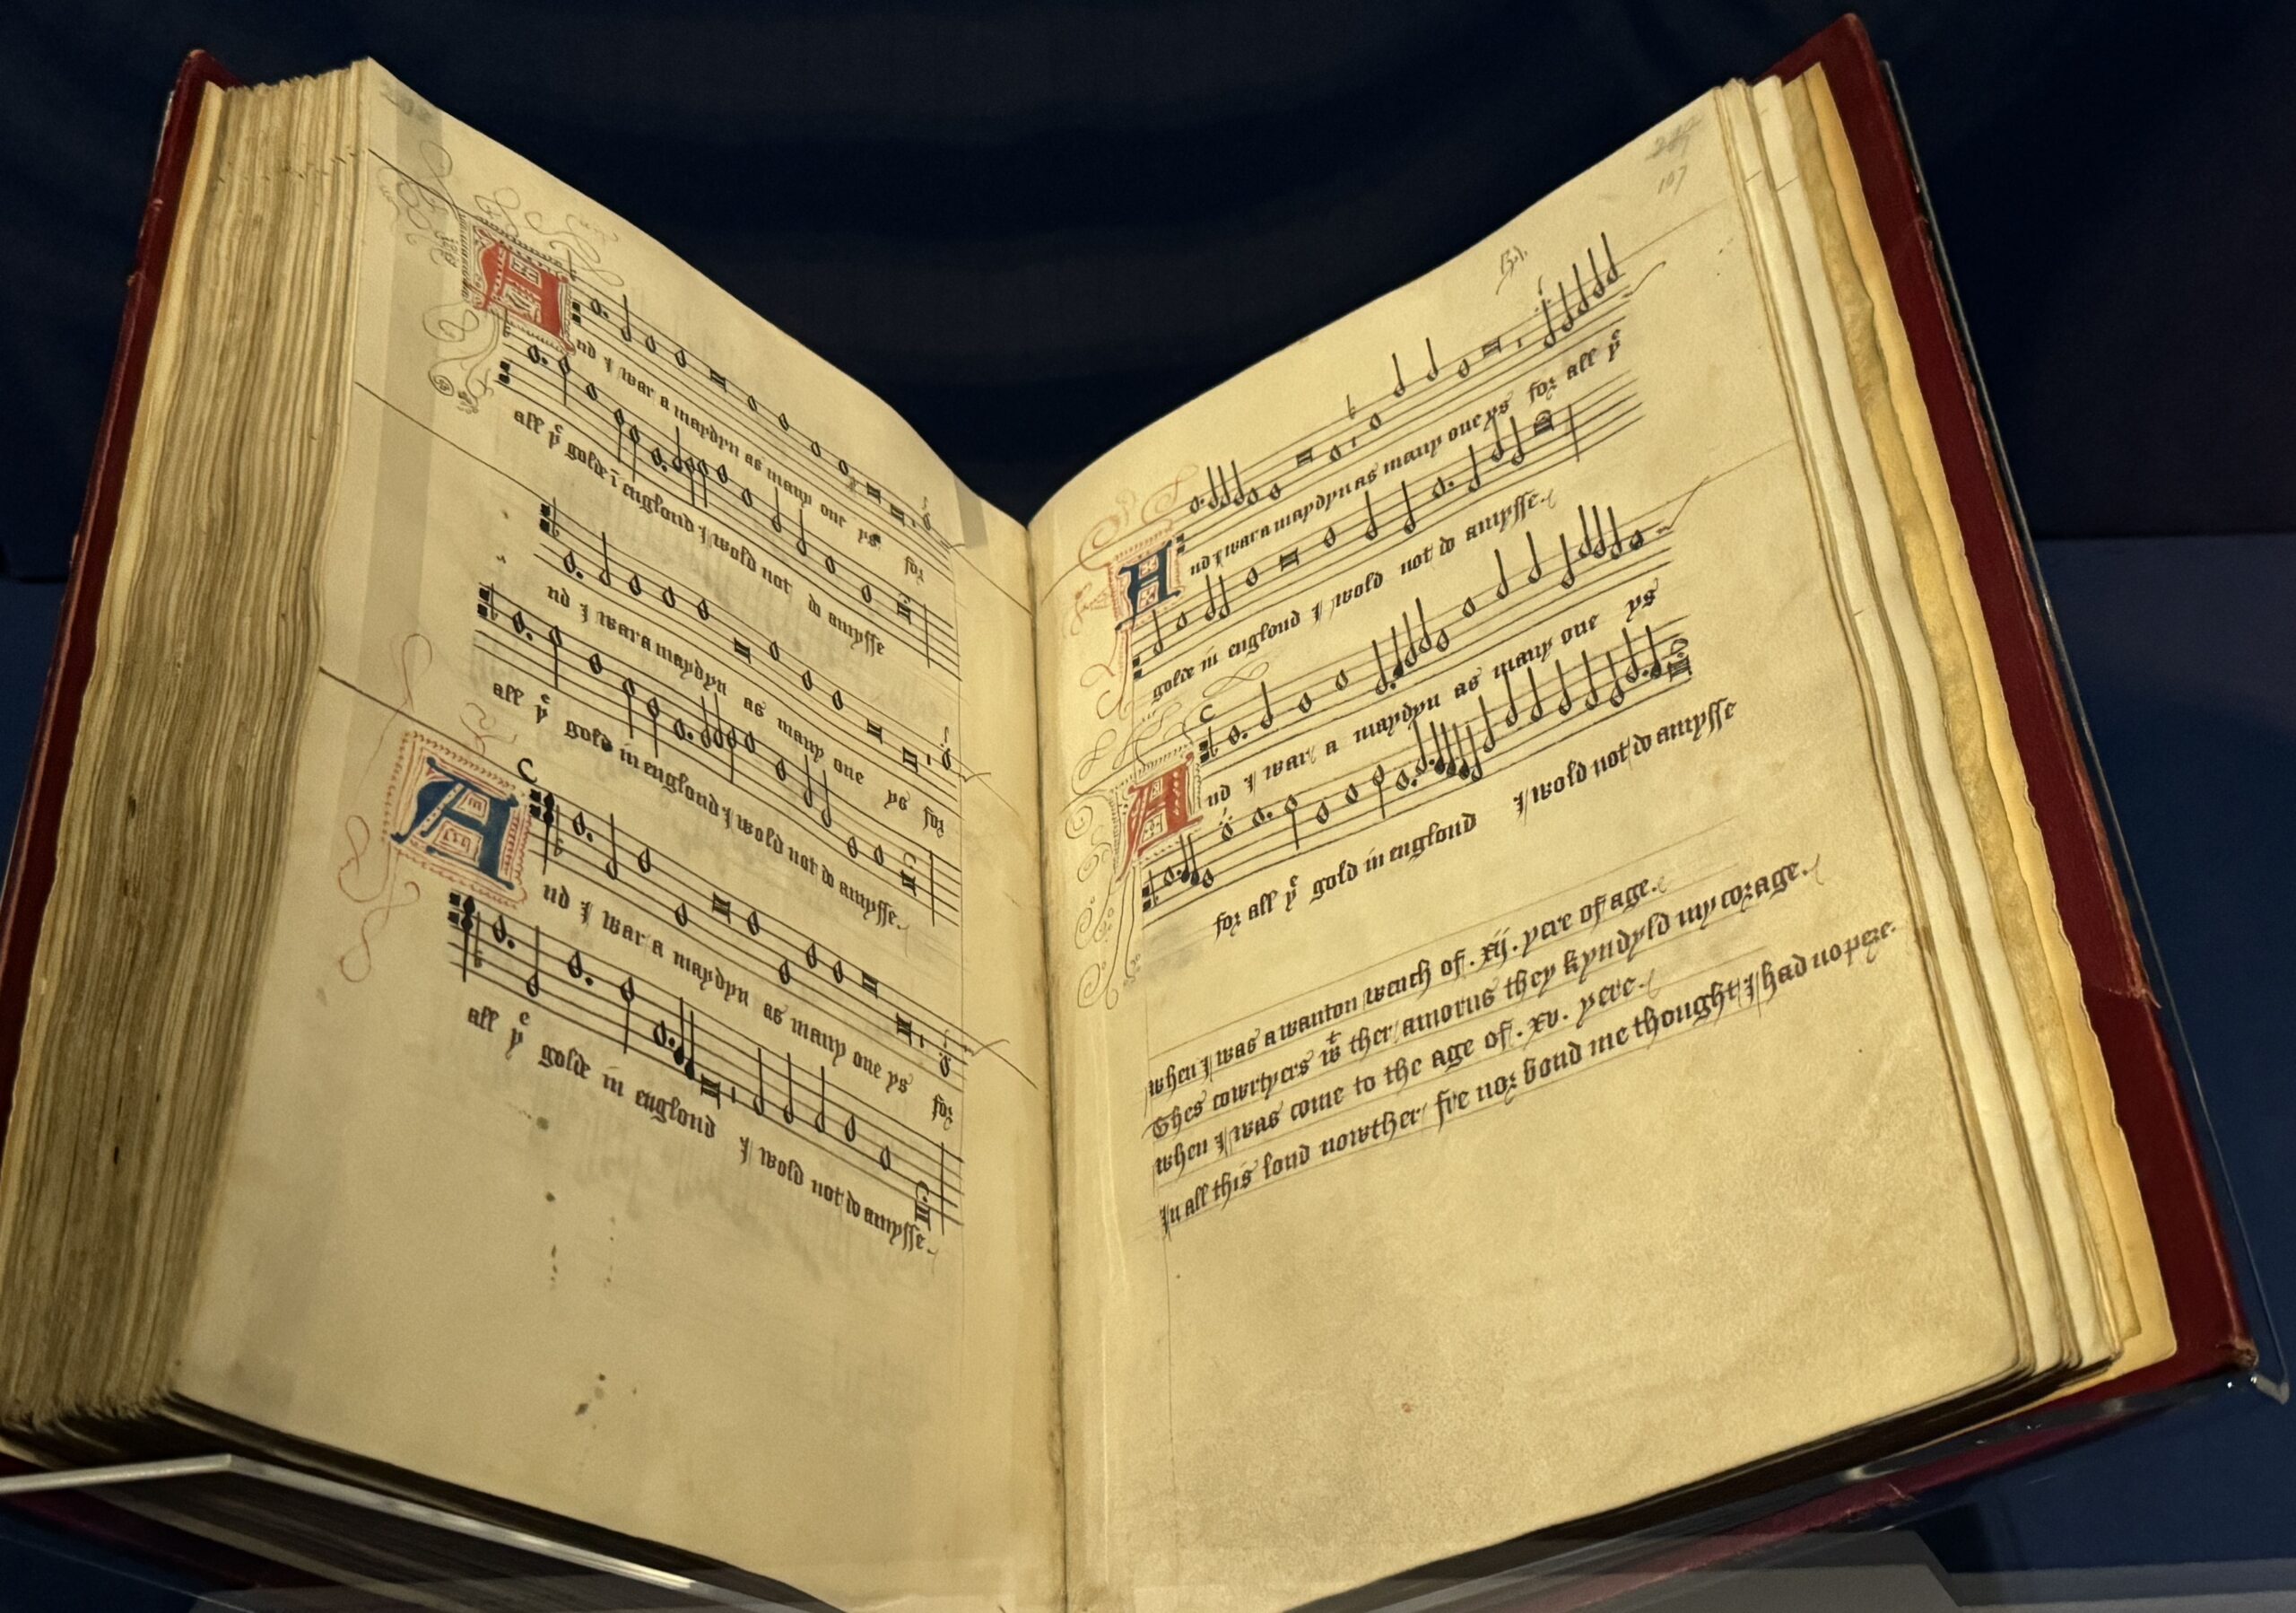 And I war a maydyn as many one ys for
all yͤ golde ī englond I wold not do amysse
nd I war a maydyn as many one ys for
all yͤ gold in englond I wold not do amysse.
C
And I war a maydyn as many one ys for
all yͤ golde in englond I wold not do amysse.
107
And I war a maydyn as many one ys for all yͤ
golde in englond I wold not do amysse.
C
And I war a maydyn as many one ys
for all yͤ gold in englond I wold not do amysse
when I was a wanton wench of .xij. yere of age.
Thes cowrtyers wͭ ther amorus they kyndyld my corage.
when I was come to the age of .xv. yere.
In all this lond nowther fre nor bond me thought I had no pere.